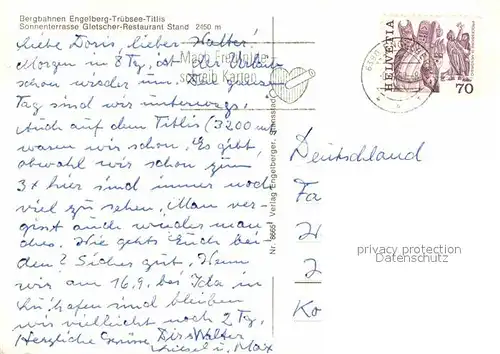 Bergbahnen Engelberg-Trübsee-Titlis
Sonnenterrasse Gletscher-Restaurant Stand 2450 m
Liebe Doris, lieber Walter!
Morgen in 8 Tg, ist der Urlaub
schon wieder um. Den ganzen
Tag sind wir unterwegs.
Auch auf dem Titlis (3200 m)
waren wir schon. Es gibt,
obwohl wir schon zum
3x hier sind immer noch
viel zu sehen. Man ver-
gisst auch wieder man
ches. Wie gehts Euch bei-
den? Sicher gut. Wenn
wir am 16.9. bei Ida in
hafen sind bleiben
wir vielleicht noch 2 Tg.
Herzliche Grüsse
Liesel u. Max
Nr. 6665 Verlag Engelberger, Stansstad
HELVETIA
70
Deutschland
Fa
Ko
privacy protection
Datenschutz